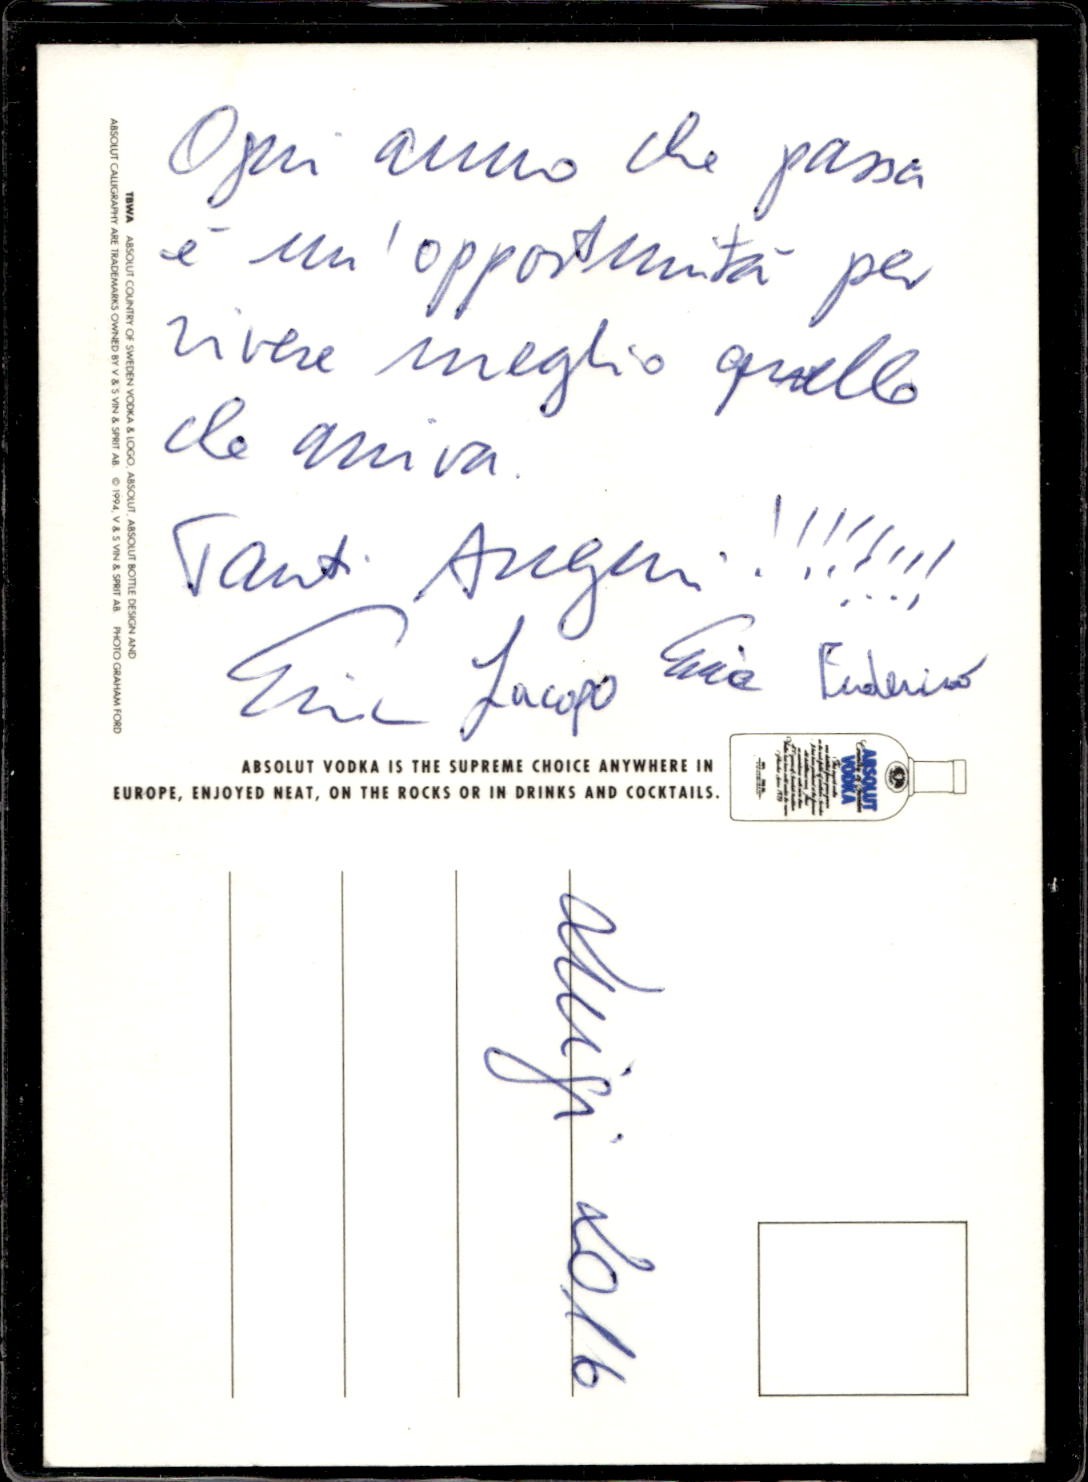 Ogni anno che passa
è un'opportunità per
vivere meglio quello
che arriva.
Tanti Auguri!!!!!!!!
Jacopo Federico
ABSOLUT VODKA IS THE SUPREME CHOICE ANYWHERE IN
EUROPE, ENJOYED NEAT, ON THE ROCKS OR IN DRINKS AND COCKTAILS.
TBWA ABSOLUT COUNTRY OF SWEDEN VODKA & LOGO, ABSOLUT, ABSOLUT BOTTLE DESIGN AND
ABSOLUT CALLIGRAPHY ARE TRADEMARKS OWNED BY V & S VIN & SPRIT AB. © 1994, V & S VIN & SPRIT AB. PHOTO GRAHAM FORD
ABSOLUT
Country of Sweden
VODKA
Luigi